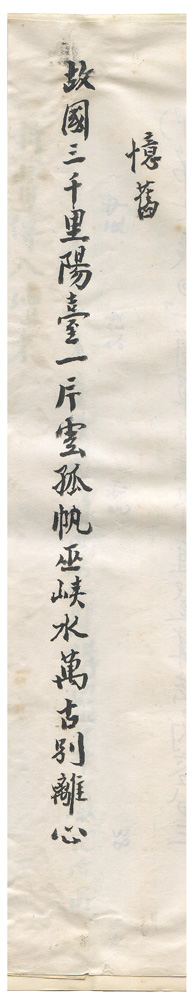 憶舊
故國三千里陽臺一片雲孤帆巫峽水萬古別離心